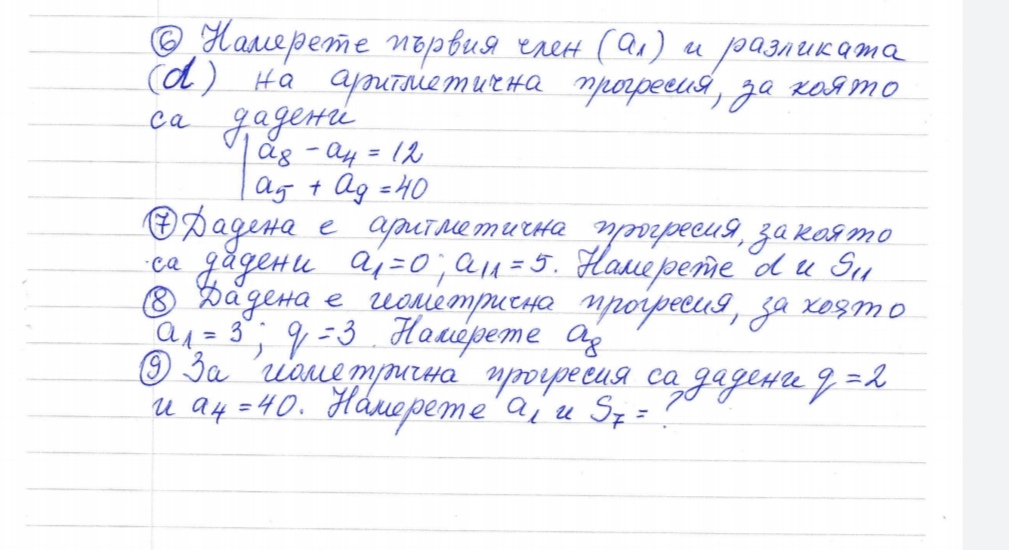 ⑥ Намерете първия член (a₁) и разликата
(d) на аритметична прогресия, за която
са дадени
| a₈ - a₄ = 12
| a₅ + a₉ = 40
⑦ Дадена е аритметична прогресия, за която
са дадени a₁ = 0; a₁₁ = 5. Намерете d и S₁₁
⑧ Дадена е геометрична прогресия, за която
a₁ = 3; q = 3. Намерете a₈
⑨ За геометрична прогресия са дадени q = 2
и a₄ = 40. Намерете a₁ и S₇ = ?